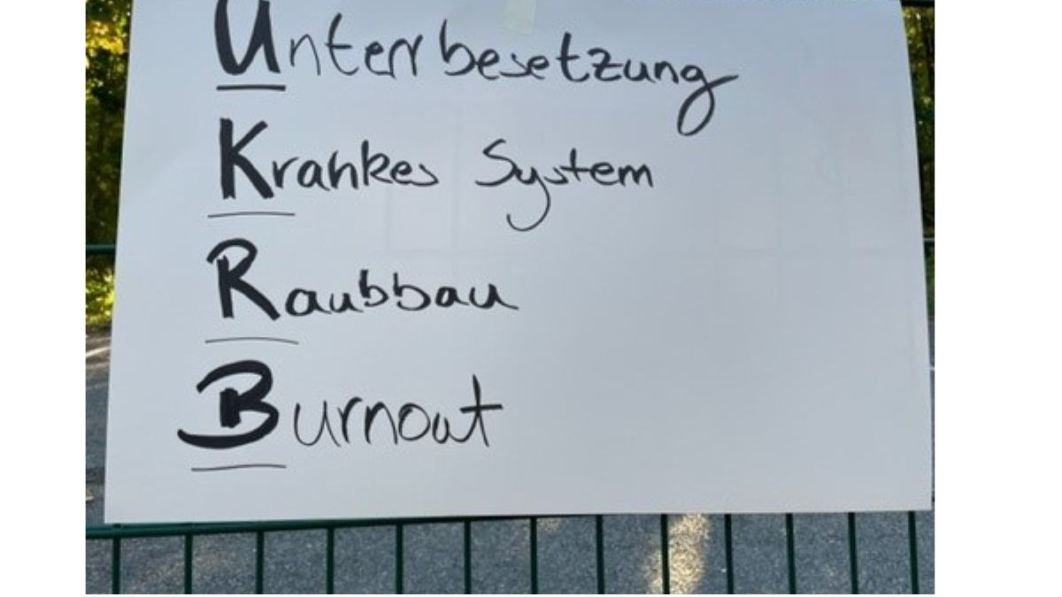 Unterbesetzung
Krankes System
Raubbau
Burnout